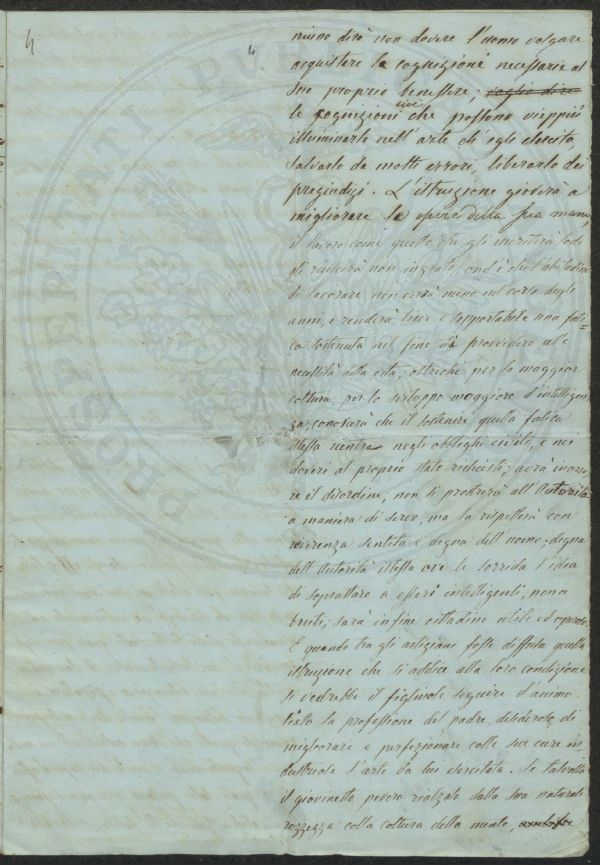 4
4
niuno dirà non dovere l'uomo volgare
acquistare le cognizioni necessarie al
suo proprio benessere; voglio dire
le cognizioni cioè che possono vieppiù
illuminarlo nell'arte ch'egli esercita
salvarlo da molti errori, liberarlo dai
pregiudizj. L'istruzione gioverà a
migliorare le opere della sua mano,
il lavoro come quello che gli meriterà lode
gli riuscirà non ingrato; ond'è che l'abitudine
di lavorare non verrà meno nel corso degli
anni, e renderà lieve e sopportabile una fati=
ca sostenuta nel fine di provvedere alle
necessità della vita; oltreché per la maggior
coltura per lo sviluppo maggiore d'intelligen
za conoscerà che il sostenere quella fatica
stessa rientra negli obblighi civili, e nei
doveri al proprio stato richiesti; avrà in orro
re il disordine, non si prostrerà all'Autorità
a maniera di servo, ma la rispetterà con
reverenza sentita e degna dell'uomo, degna
dell'Autorità istessa ove le sorrida l'idea
di soprattare a esseri intelligenti, non a
bruti; sarà infine cittadino utile ed operoso.
E quando tra gli artigiani fosse diffusa quella
istruzione che si addice alla loro condizione
si vedrebbe il figliuolo seguire d'animo
lieto la professione del padre, desideroso di
migliorare e perfezionare colle sue cure in
tellettuale l'arte da lui esercitata. Se talvolta
il giovinetto povero rialzato dalla sua naturale
rozzezza colla coltura della mente,
PROSPERITATI PUBLICAE